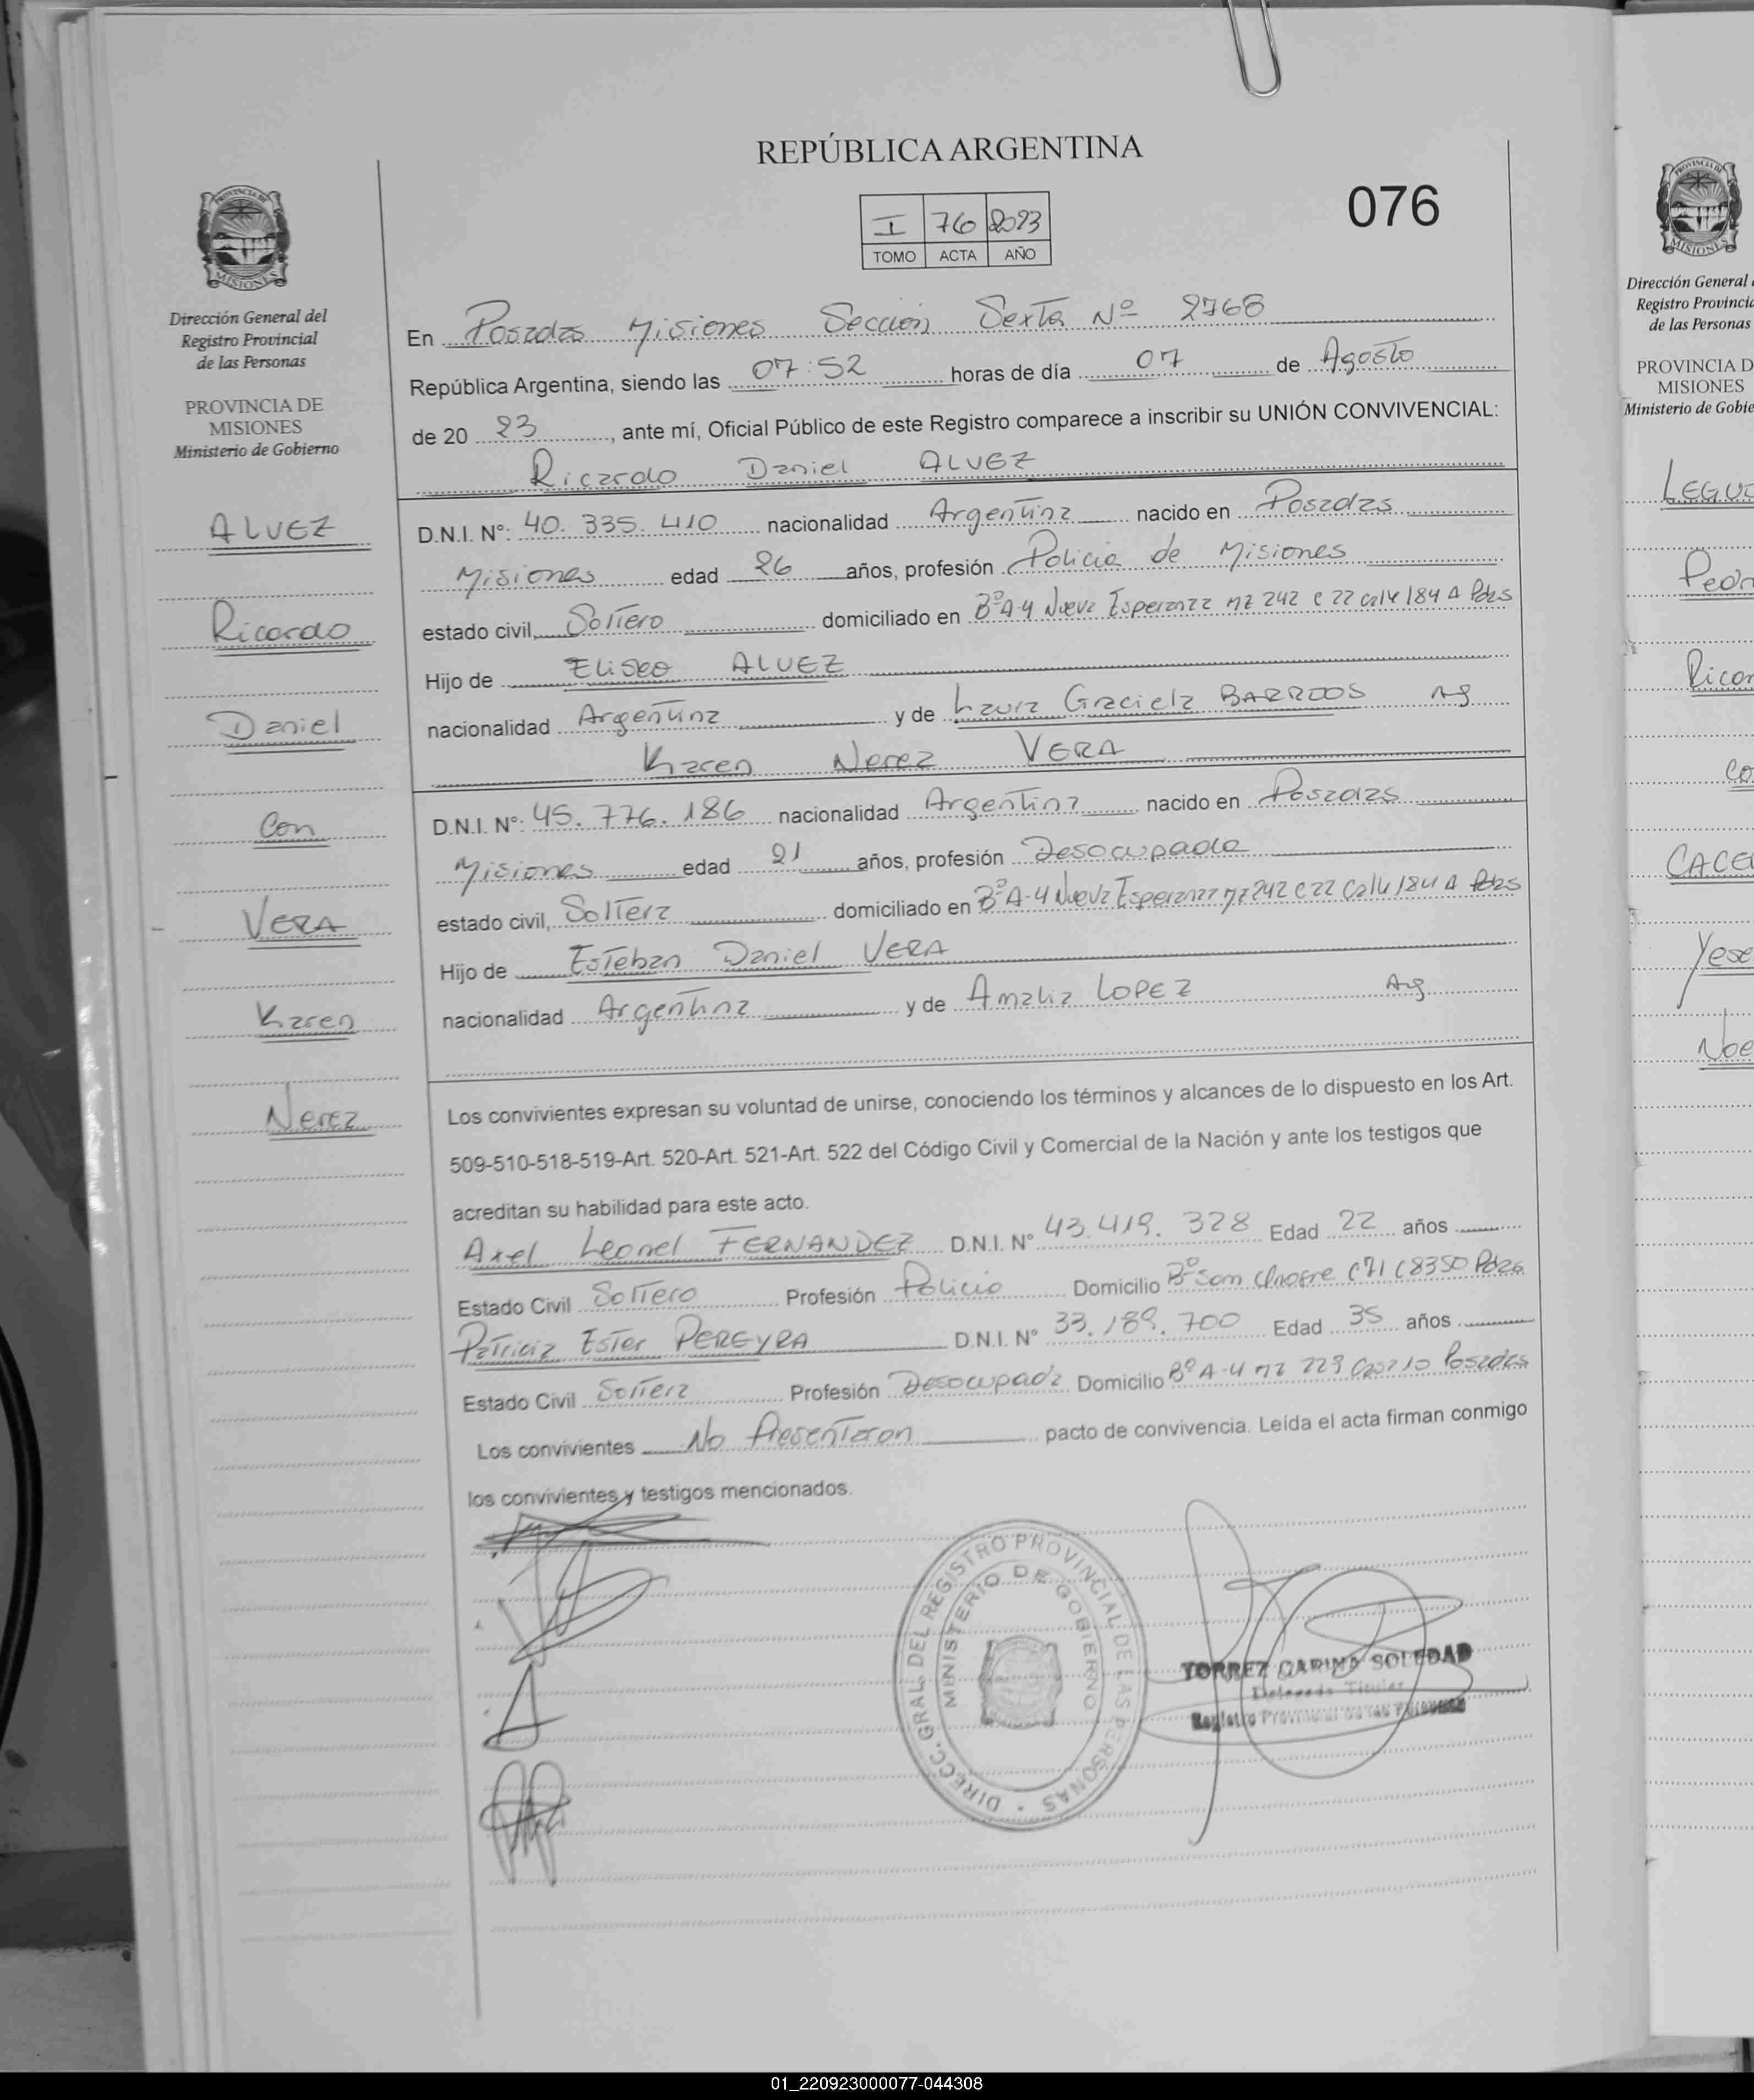 REPÚBLICA ARGENTINA
076
I 76 2023
TOMO ACTA AÑO
Dirección General del
Registro Provincial
de las Personas
PROVINCIA DE
MISIONES
Ministerio de Gobierno
ALVEZ
Ricardo
Daniel
Con
VERA
Karen
Nerea
En Posadas Misiones Sección Sexta Nº 2768
República Argentina, siendo las 07:52 horas de día 07 de Agosto
de 20 23, ante mí, Oficial Público de este Registro comparece a inscribir su UNIÓN CONVIVENCIAL:
Ricardo Daniel ALVEZ
D.N.I. Nº: 40.335.410 nacionalidad Argentina nacido en Posadas
Misiones edad 26 años, profesión Policia de Misiones
estado civil, Soltero domiciliado en Bº A-4 Nueva Esperanza mz 242 c 22 calle 184 A Pdas
Hijo de Eliseo ALVEZ
nacionalidad Argentina y de Laura Graciela BARRDOS Arg
Karen Nerea VERA
D.N.I. Nº: 45.776.186 nacionalidad Argentina nacido en Posadas
Misiones edad 21 años, profesión Desocupada
estado civil, Soltera domiciliado en Bº A-4 Nueva Esperanza mz 242 c 22 Calle 184 A Pdas
Hijo de Esteban Daniel VERA
nacionalidad Argentina y de Amalia LOPEZ Arg
Los convivientes expresan su voluntad de unirse, conociendo los términos y alcances de lo dispuesto en los Art.
509-510-518-519-Art. 520-Art. 521-Art. 522 del Código Civil y Comercial de la Nación y ante los testigos que
acreditan su habilidad para este acto.
Axel Leonel FERNANDEZ D.N.I. Nº 43.419.328 Edad 22 años
Estado Civil Soltero Profesión Policia Domicilio Bº San Onofre C 71 C 8350 Pdas
Patricia Ester PEREYRA D.N.I. Nº 33.189.700 Edad 35 años
Estado Civil Soltera Profesión Desocupada Domicilio Bº A-4 mz 229 Casa 10 Posadas
Los convivientes No Presentaron pacto de convivencia. Leída el acta firman conmigo
los convivientes y testigos mencionados.
DIRECC. GRAL. DEL REGISTRO PROVINCIAL DE LAS PERSONAS
MINISTERIO DE GOBIERNO
TORREZ CARINA SOLEDAD
Delegada Titular
Registro Provincial de las Personas
Dirección General
Registro Provincia
de las Personas
PROVINCIA D
MISIONES
Ministerio de Gobie
LEGUI
Pedr
Ricar
Co
CACE
Yese
Noe
01_220923000077-044308